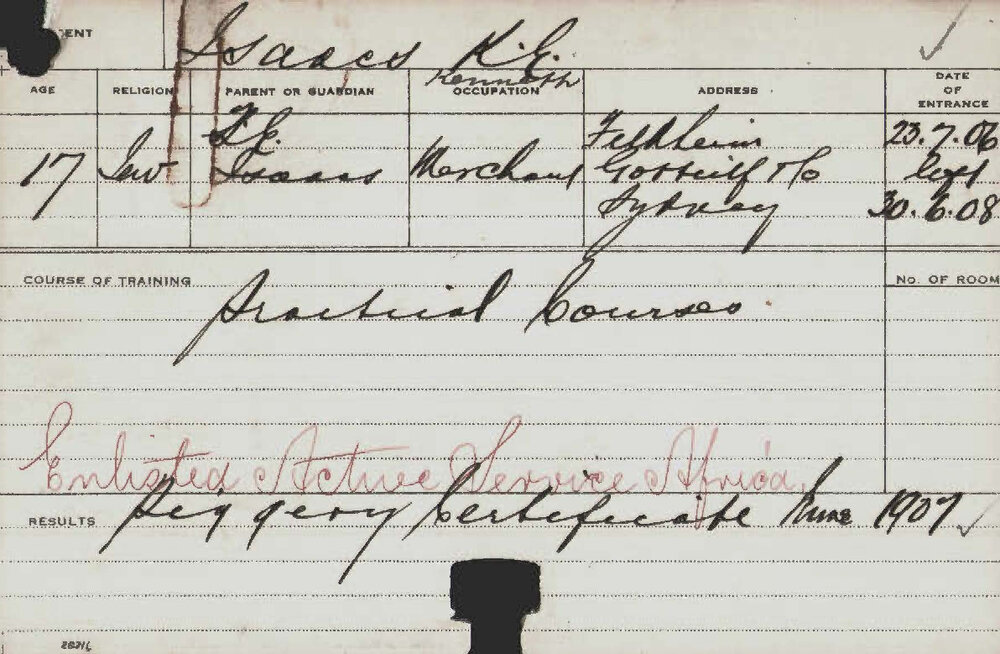 ENT
Isaacs K.E.
Kenneth
AGE RELIGION PARENT OR GUARDIAN OCCUPATION ADDRESS DATE OF ENTRANCE
17 Jew Isaacs Merchant Feldheim
Gotthelf & Co
Sydney
23.7.06
left
30.6.08
COURSE OF TRAINING
No. OF ROOM
Practical Courses.
Enlisted Active Service Africa.
RESULTS Piggery Certificate June 1907